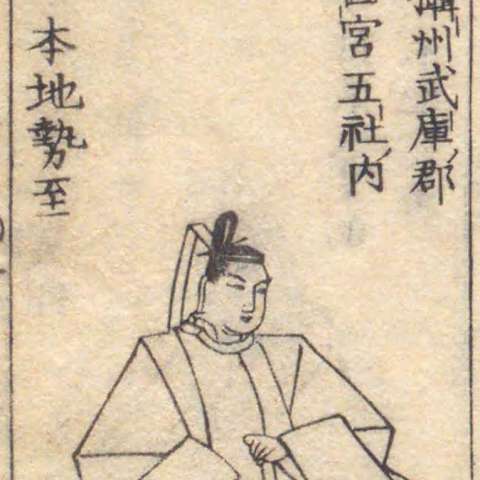 攝州武庫郡
宮五社内
本地勢至